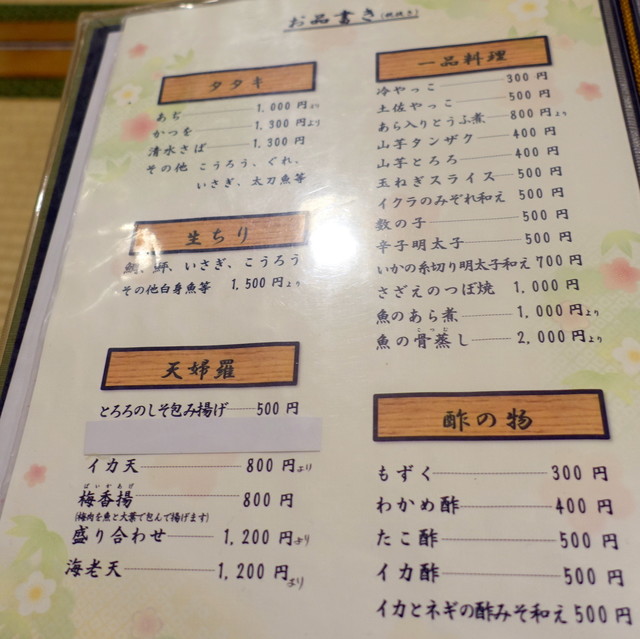 お品書き(税抜き)
タタキ
あぢ 1,000円より
かつを 1,300円より
清水さば 1,300円
その他 こうろう、ぐれ、
いさぎ、太刀魚等
生ちり
鯛、鮃、いさぎ、こうろう
その他白身魚等 1,500円より
天婦羅
とろろのしそ包み揚げ 500円
イカ天 800円より
ばいかあげ
梅香揚 800円
(梅肉を魚と大葉で包んで揚げます)
盛り合わせ 1,200円より
海老天 1,200円より
一品料理
冷やっこ 300円
土佐やっこ 500円
あら入りとうふ煮 800円より
山芋タンザク 400円
山芋とろろ 400円
玉ねぎスライス 500円
イクラのみぞれ和え 500円
数の子 500円
辛子明太子 500円
いかの糸切り明太子和え 700円
さざえのつぼ焼 1,000円
魚のあら煮 1,000円より
魚の骨蒸し 2,000円より
酢の物
もずく 300円
わかめ酢 400円
たこ酢 500円
イカ酢 500円
イカとネギの酢みそ和え 500円